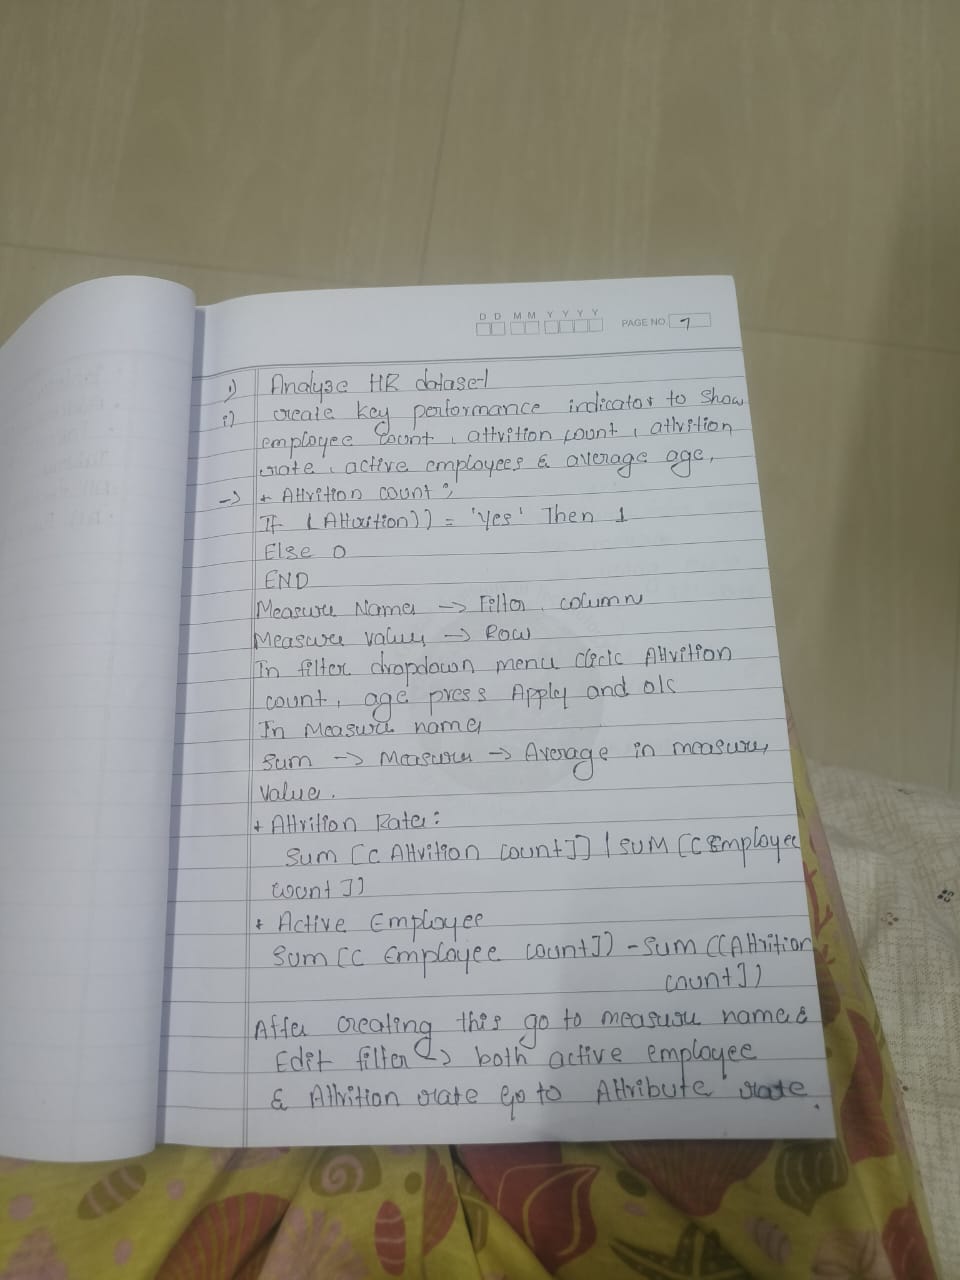 D D M M Y Y Y Y PAGE NO. 7
1) Analyze HR dataset
i) create key performance indicator to show
employee count, attrition count, attrition
rate, active employees & average age,
-> + Attrition count:
If (Attrition)) = 'Yes' Then 1
Else 0
END
Measure Names -> Filter, column
Measure values -> Row
In filter dropdown menu click Attrition
count, age press Apply and ok
In Measure names
Sum -> Measures -> Average in measures
value.
+ Attrition Rate:
Sum [C Attrition count]] / SUM [C Employee
count])
+ Active Employee
Sum [C Employee count]) - Sum ([Attrition
count])
After creating this go to measure names
Edit filter -> both active employee
& Attrition rate go to Attribute rate.